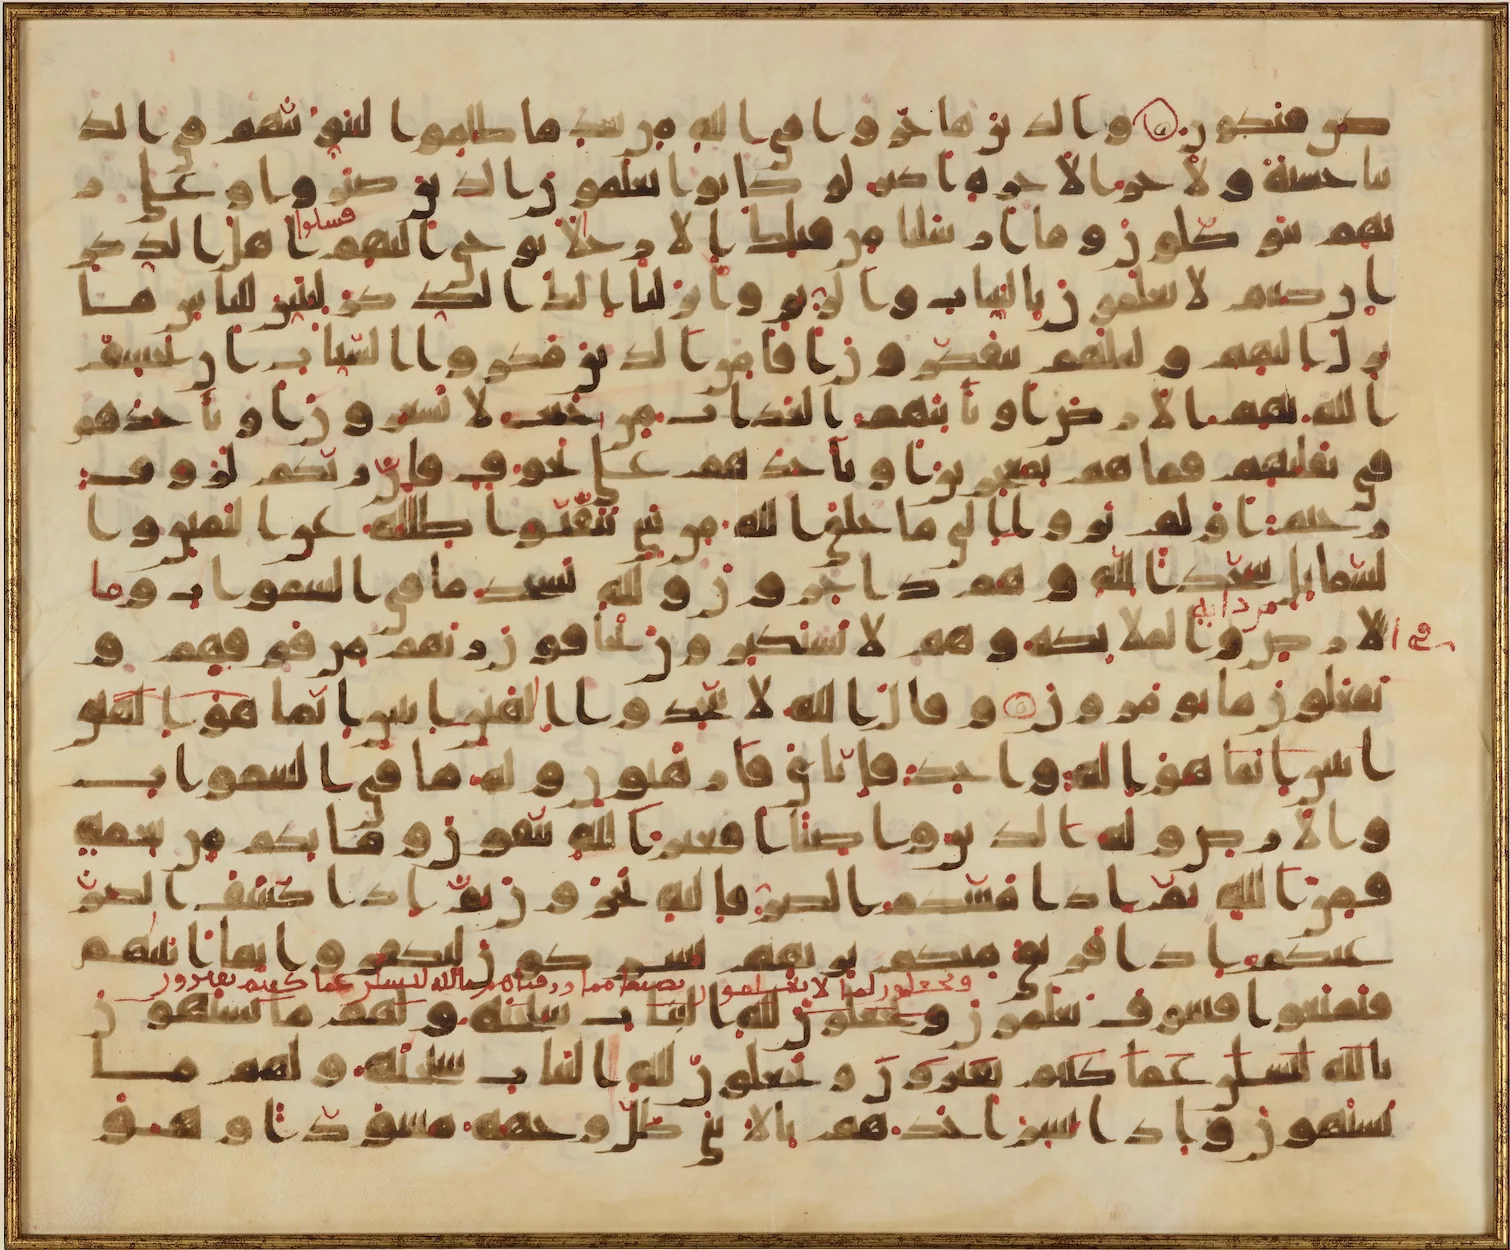 كن فيكون والذين هاجروا في الله من بعد ما ظلموا لنبوئنهم في الد
نيا حسنة ولاجر الاخرة اكبر لو كانوا يعلمون الذين صبروا وعلى ر
بهم يتوكلون وما ارسلنا من قبلك الا رجالا نوحي اليهم فسلوا اهل الذكر
ان كنتم لا تعلمون بالبينات والزبر وانزلنا اليك الذكر لتبين للناس ما
نزل اليهم ولعلهم يتفكرون افامن الذين مكروا السيئات ان يخسف
الله بهم الارض او ياتيهم العذاب من حيث لا يشعرون او ياخذهم
في تقلبهم فما هم بمعجزين او ياخذهم على تخوف فان ربكم لروف
رحيم اولم يروا الى ما خلق الله من شي يتفيوا ظلله عن اليمين وا
لشمايل سجدا لله وهم داخرون ولله يسجد ما في السموات وما
في الارض من دابة والملايكة وهم لا يستكبرون يخافون ربهم من فوقهم و
يفعلون ما يومرون وقال الله لا تتخذوا الهين اثنين انما هو الهين
اثنين انما هو اله واحد فاياي فارهبون وله ما في السموات
والارض وله الدين واصبا افغير الله تتقون وما بكم من نعمة
فمن الله ثم اذا مسكم الضر فاليه تجرون ثم اذا كشف الضر
عنكم اذا فريق منكم بربهم يشركون ليكفروا بما اتينهم
ويجعلون لما لا يعلمون نصيبا مما رزقناهم تالله لتسئلن عما كنتم تفترون
فتمتعوا فسوف تعلمون ويجعلون لله البنات سبحنه ولهم ما يشتهون
تالله لتسئلن عما كنتم تفترون ويجعلون لله البنات سبحنه ولهم ما
يشتهون واذا بشر احدهم بالانثى ظل وجهه مسودا وهو